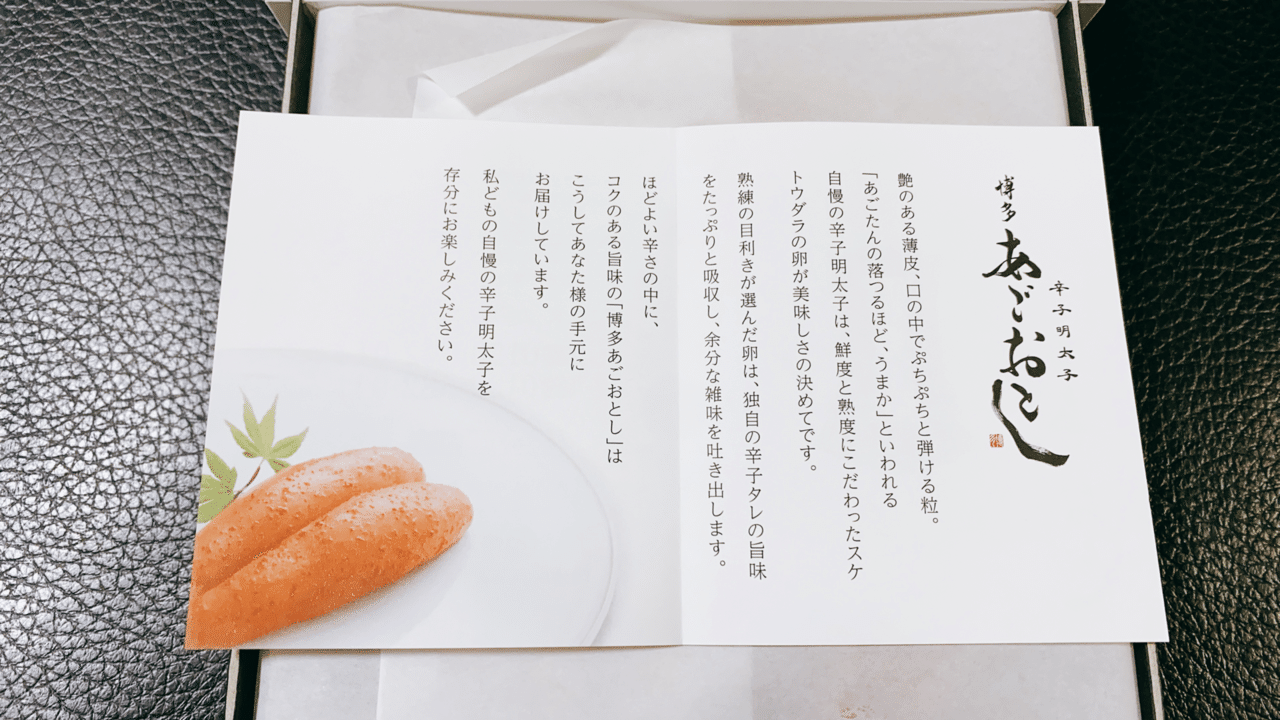 博多
あごおとし
辛子明太子
艶のある薄皮、口の中でぷちぷちと弾ける粒。
「あごたんの落つるほど、うまか」といわれる
自慢の辛子明太子は、鮮度と熟度にこだわったスケ
トウダラの卵が美味しさの決めてです。
熟練の目利きが選んだ卵は、独自の辛子タレの旨味
をたっぷりと吸収し、余分な雑味を吐き出します。
ほどよい辛さの中に、
コクのある旨味の「博多あごおとし」は
こうしてあなた様の手元に
お届けしています。
私どもの自慢の辛子明太子を
存分にお楽しみください。